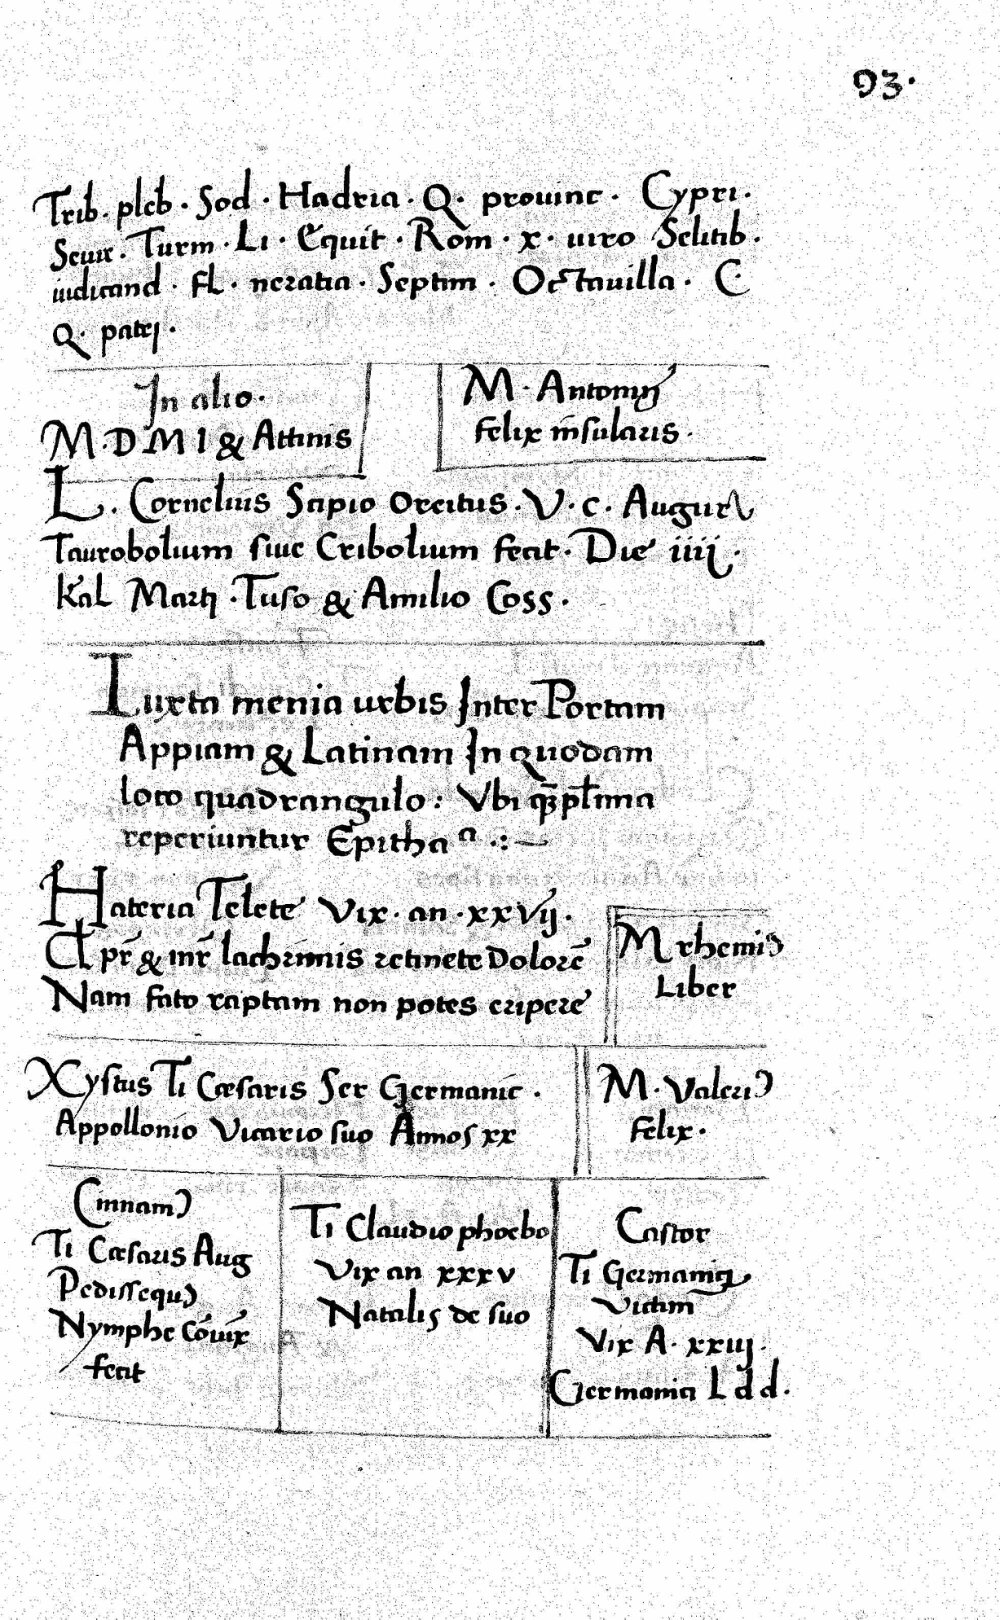 93.
Trib. pleb. Sod. Hadria. Q. prouinc. Cypri.
Seuir. Turm. LI. Equit. Rom. x. uiro Sclitib.
iudicand. FL. neratia. Septim. Octauilla. C
Q. patri.
In alio.
M. D M I & Attinis
M. Antonij
Felix insularis.
L. Cornelius Scipio Orcitus. V. C. Augur
Taurobolium siue Cribolium fecit. Die iiij.
Kal Martij. Tuso & Amilio Coss.
Iuxta menia urbis Inter Portam
Appiam & Latinam In quodam
loco quadrangulo: Vbi q̄ pl̄ima
reperiuntur Epitha a .:—
Hateria Telete Vix. an. xxVij.
Ct pr̄ & mr̄ lachrimis retinete Dolorē
Nam fato raptam non potes eripere
M rhemiꝰ
Liber
Xystus Ti Cæsaris Ser Germanic.
Appollonio Vicario suo Annos xx
M. Valeriꝰ
Felix.
Cinnamꝰ
Ti Cæsaris Aug
Pedissequꝰ
Nymphe cōuix
fecit
Ti Claudio phoebo
Vix an xxxv
Natalis de suo
Castor
Ti Germanici
Victim
Vix A. xxiij.
Germania L d d.